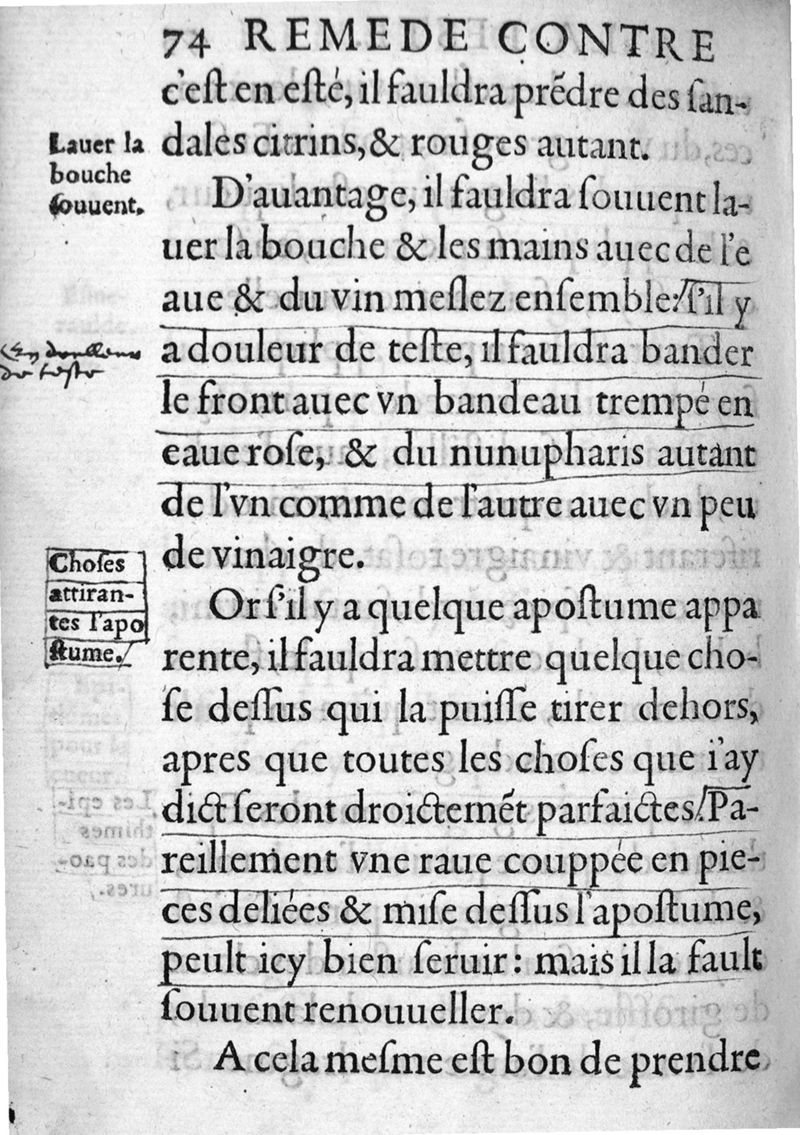 74 REMEDE CONTRE
c'eſt en eſté, il fauldra prẽdre des ſan-
dales citrins, & rouges autant.
Lauer la
bouche
ſouuent.
D'auantage, il fauldra ſouuent la-
uer la bouche & les mains auec de l'e
aue & du vin meſlez enſemble: ſ'il y
a douleur de teſte, il fauldra bander
le front auec vn bandeau trempé en
eaue roſe, & du nunupharis autant
de l'vn comme de l'autre auec vn peu
de vinaigre.
Choſes
attiran-
tes l'apo
ſtume.
Or ſ'il y a quelque apoſtume appa
rente, il fauldra mettre quelque cho-
ſe deſſus qui la puiſſe tirer dehors,
apres que toutes les choſes que i'ay
dict ſeront droictemẽt parfaictes. Pa-
reillement vne raue couppée en pie-
ces deliées & miſe deſſus l'apoſtume,
peult icy bien ſeruir: mais il la fault
ſouuent renouueller.
A cela meſme eſt bon de prendre